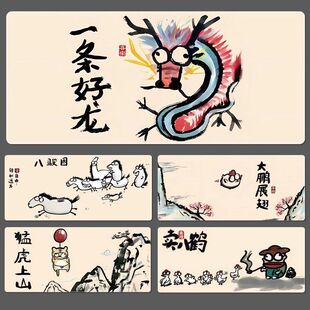 一条好龙
八骏图
大鹏展翅
猛虎上山